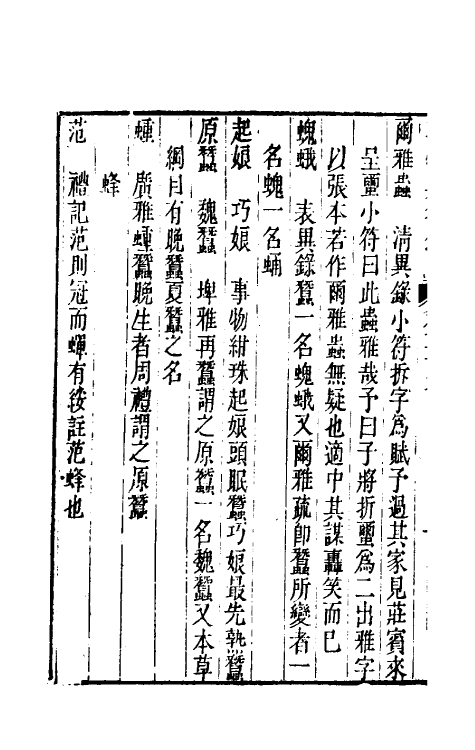 爾雅蟲　清異錄小符拆字爲賦予過其家見莊賓來
呈璽小符曰此蟲雅哉予曰子將折璽爲二出雅字
以張本若作爾雅蟲無疑也適中其謀轟笑而已
螝蛾　表異錄蠶一名螝蛾又爾雅疏卽蠶所變者一
名螝一名蛹
起娘　巧娘　事物紺珠起娘頭眠蠶巧娘最先孰蠶
原蠶　魏蠶　埤雅再蠶謂之原蠶一名魏蠶又本草
綱目有晚蠶夏蠶之名
䗰　廣雅䗰蠶晚生者周禮謂之原蠶
蜂
范　禮記范則冠而蟬有緌註范蜂也